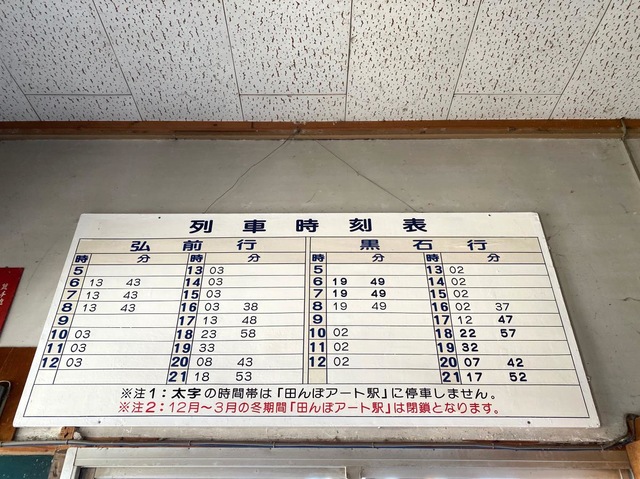 列車時刻表
弘前行 黒石行
時 分 時 分 時 分 時 分
5 13 03 5 13 02
6 13 43 14 03 6 19 49 14 02
7 13 43 15 03 7 19 49 15 02
8 13 43 16 03 38 8 19 49 16 02 37
9 17 13 48 9 17 12 47
10 03 18 23 58 10 02 18 22 57
11 03 19 33 11 02 19 32
12 03 20 08 43 12 02 20 07 42
21 18 53 21 17 52
※注1：太字の時間帯は「田んぼアート駅」に停車しません。
※注2：12月～3月の冬期間「田んぼアート駅」は閉鎖となります。